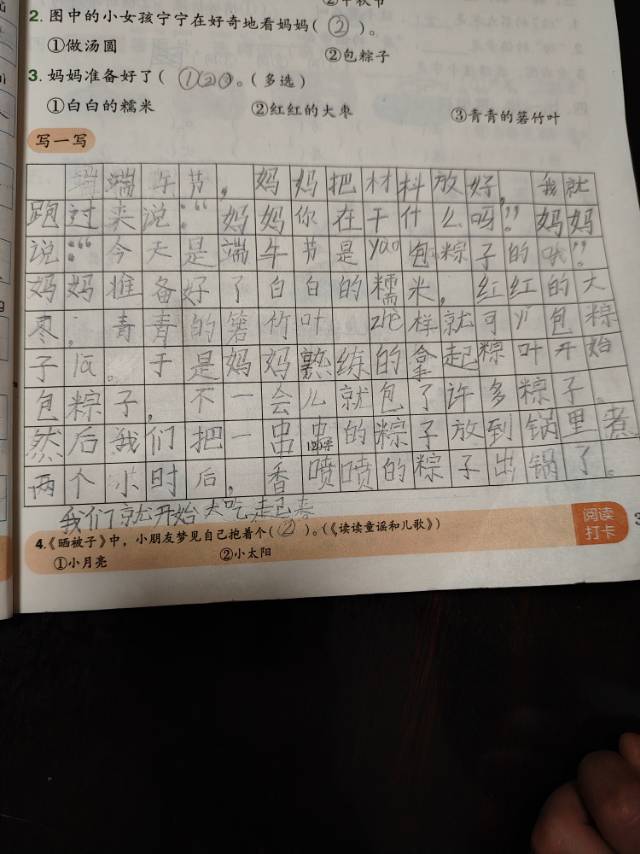 ②中秋节
2.图中的小女孩宁宁在好奇地看妈妈(②)。
①做汤圆 ②包粽子
3.妈妈准备好了(①②③)。(多选)
①白白的糯米 ②红红的大枣 ③青青的箬竹叶
写一写
端端午节，妈妈把材料放好，我就
跑过来说：“妈妈你在干什么吗？”妈妈
说：“今天是端午节是yao包粽子的
妈妈准备好了白白的糯米，红红的大
枣，青青的箬竹叶 样就可yi包粽
子了。于是妈妈熟练的拿起粽叶开始
包粽子，不一会儿就包了许多粽子。
然后我们把一串串的粽子放到锅里煮
两个小时后，香喷喷的粽子出锅了。
我们就开始大吃起来
4.《晒被子》中，小朋友梦见自己抱着个(②)。(《读读童谣和儿歌》)
①小月亮 ②小太阳
阅读
打卡